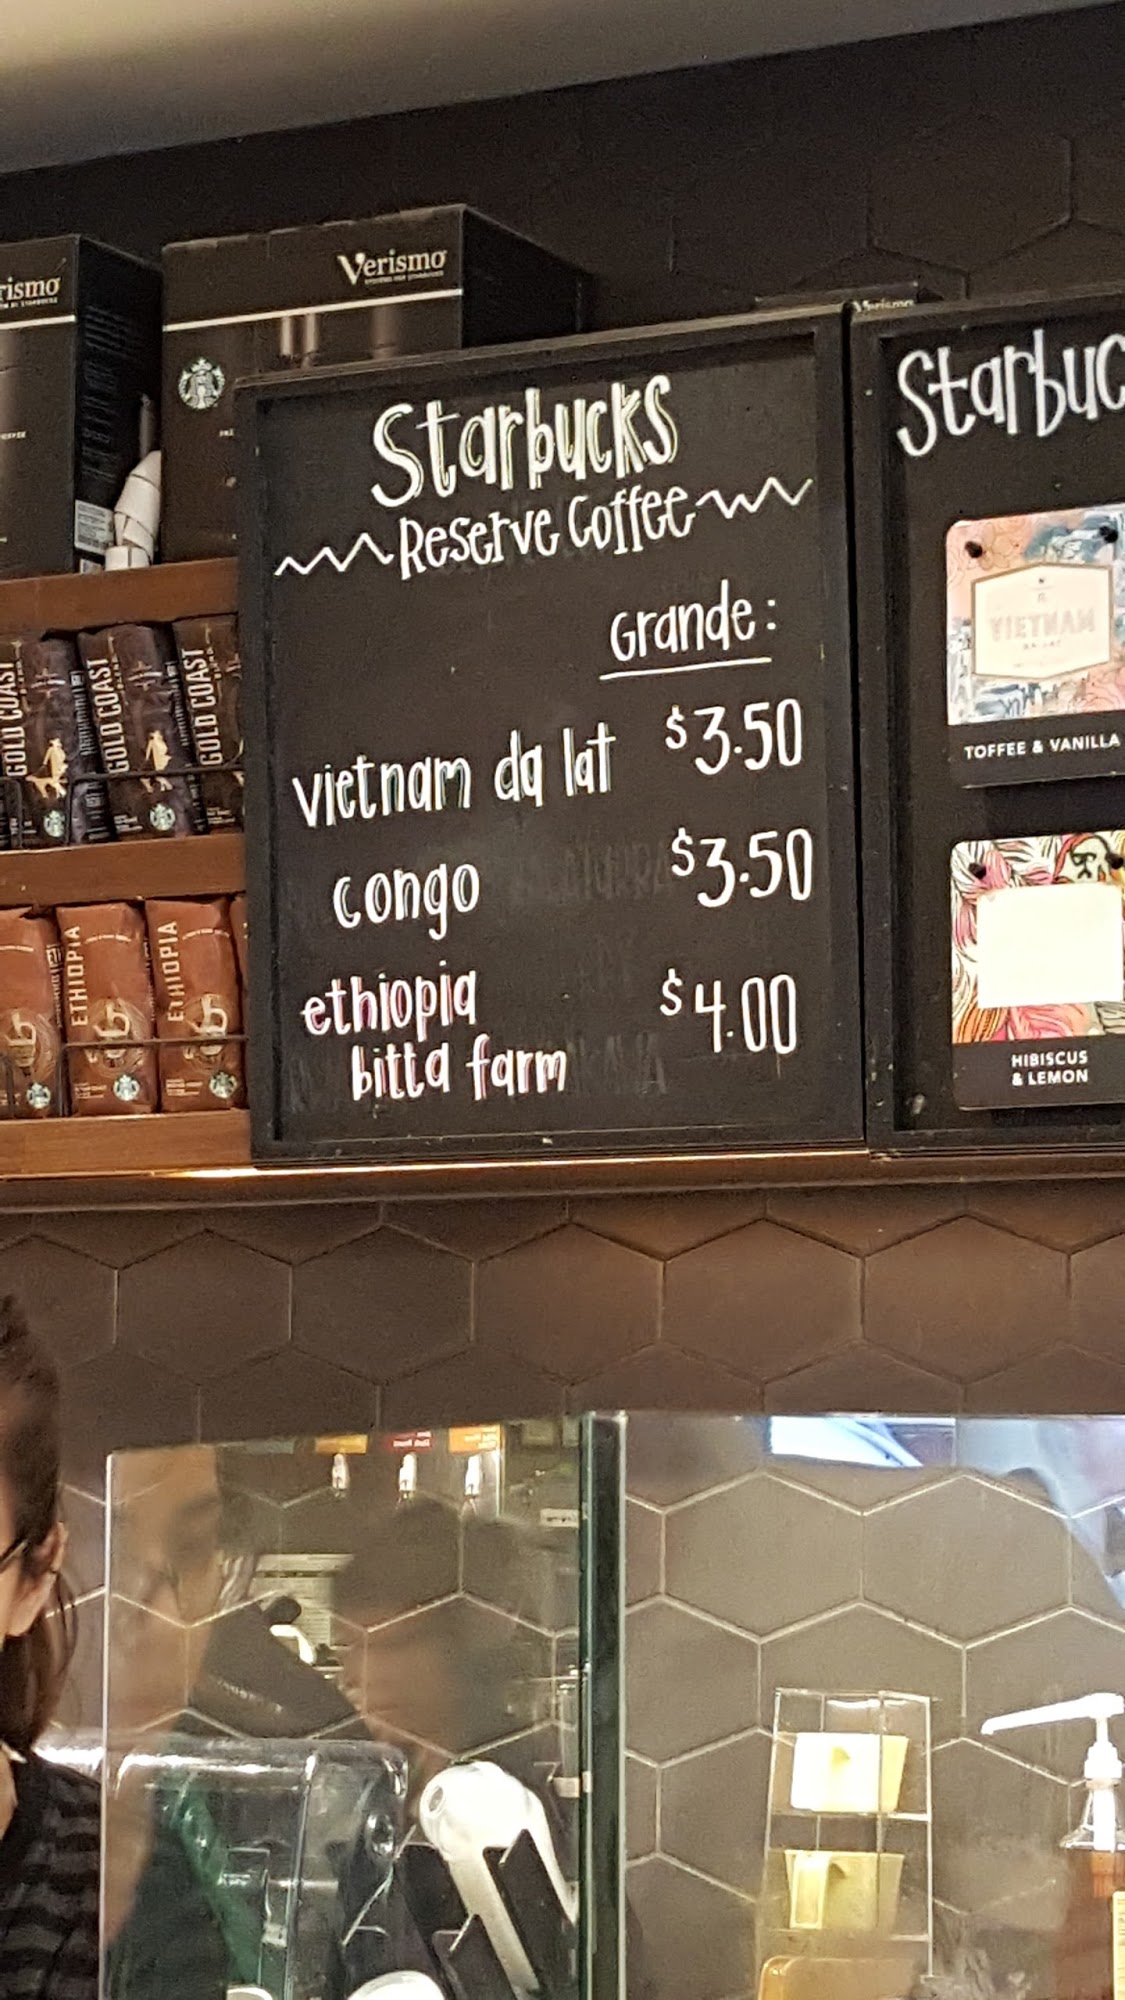 rismo
Verismo
Verismo
Starbucks
Reserve Coffee
Grande:
vietnam da lat $3.50
congo $3.50
ethiopia
bitta farm $4.00
Starbuc
VIETNAM
DA LAT
TOFFEE & VANILLA
HIBISCUS
& LEMON
GOLD COAST
GOLD COAST
GOLD COAST
ETHIOPIA
ETHIOPIA